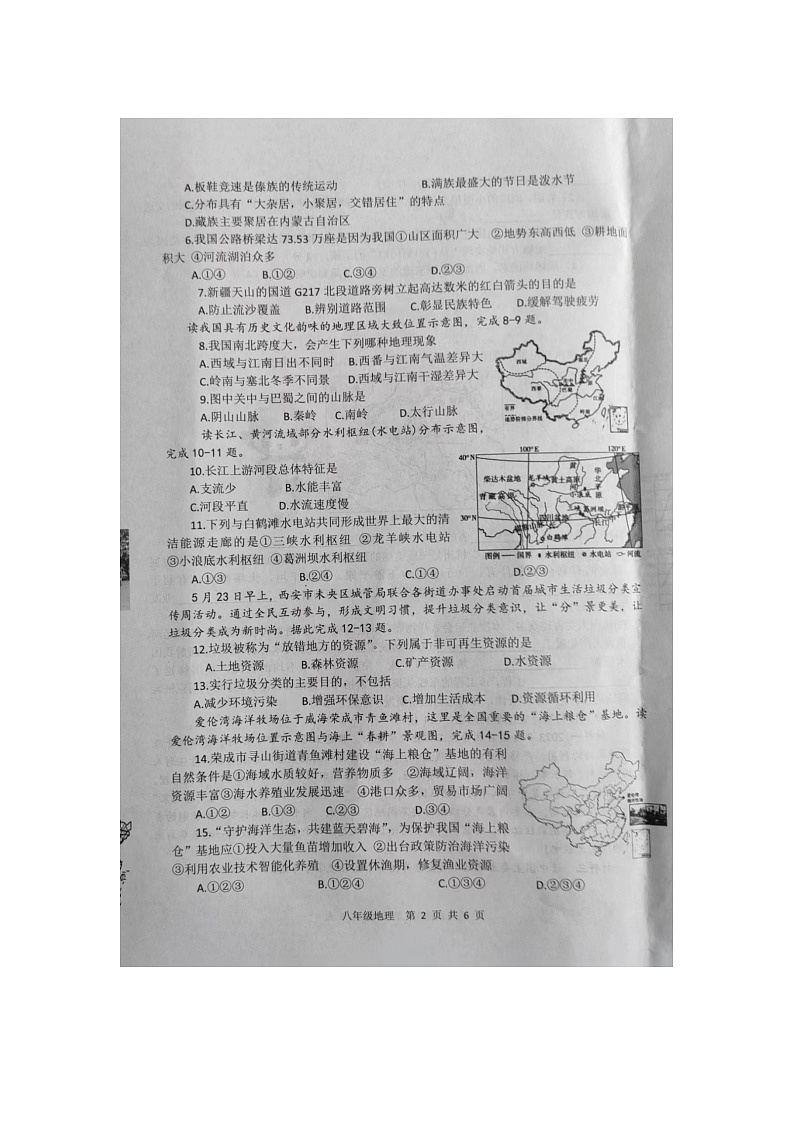 A.板鞋竞速是傣族的传统运动 B.满族最盛大的节日是泼水节
C.分布具有“大杂居，小聚居，交错居住”的特点
D.藏族主要聚居在内蒙古自治区
6.我国公路桥梁达 73.53 万座是因为我国①山区面积广大 ②地势东高西低 ③耕地面
积大 ④河流湖泊众多
A.①④ B.①② C.③④ D.②③
7.新疆天山的国道 G217 北段道路旁树立起高达数米的红白箭头的目的是
A.防止流沙覆盖 B.辨别道路范围 C.彰显民族特色 D.缓解驾驶疲劳
读我国具有历史文化韵味的地理区域大致位置示意图，完成 8-9 题。
8.我国南北跨度大，会产生下列哪种地理现象
A.西域与江南日出不同时 B.西番与江南气温差异大
C.岭南与塞北冬季不同景 D.西域与江南干湿差异大
9.图中关中与巴蜀之间的山脉是
A.阴山山脉 B.秦岭 C.南岭 D.太行山脉
读长江、黄河流域部分水利枢纽(水电站)分布示意图，
完成 10-11 题。
10.长江上游河段总体特征是
A.支流少 B.水能丰富
C.河段平直 D.水流速度慢
11.下列与白鹤滩水电站共同形成世界上最大的清
洁能源走廊的是①三峡水利枢纽 ②龙羊峡水电站
③小浪底水利枢纽 ④葛洲坝水利枢纽
A.①③ B.②④ C.①④ D.②③
西域
西番
巴蜀
江南
岭南
塞北
关中
地势阶梯分界线
100°E 120°E
40°N
柴达木盆地
龙羊峡
黄土高原
华北平原
小浪底
青藏高原
30°N
四川盆地
葛洲坝
长江
白鹤滩
图例 国界 水利枢纽 水电站 河流
5 月 23 日早上，西安市未央区城管局联合各街道办事处启动首届城市生活垃圾分类宣
传周活动。通过全民互动参与，形成文明习惯，提升垃圾分类意识，让“分”景更美，让
垃圾分类成为新时尚。据此完成 12-13 题。
12.垃圾被称为“放错地方的资源”。下列属于非可再生资源的是
A.土地资源 B.森林资源 C.矿产资源 D.水资源
13.实行垃圾分类的主要目的，不包括
A.减少环境污染 B.增强环保意识 C.增加生活成本 D.资源循环利用
爱伦湾海洋牧场位于威海荣成市青鱼滩村，这里是全国重要的“海上粮仓”基地。读
爱伦湾海洋牧场位置示意图与海上“春耕”景观图，完成 14-15 题。
14.荣成市寻山街道青鱼滩村建设“海上粮仓”基地的有利
自然条件是①海域水质较好，营养物质多 ②海域辽阔，海洋
资源丰富③海水养殖业发展迅速 ④港口众多，贸易市场广阔
A.①② B.①③ C.②③ D.③④
15.“守护海洋生态，共建蓝天碧海”，为保护我国“海上粮
仓”基地应①投入大量鱼苗增加收入 ②出台政策防治海洋污染
③利用农业技术智能化养殖 ④设置休渔期，修复渔业资源
A.①②③ B.①②④ C.①③④ D.②③④
爱伦湾
海洋牧场
八年级地理 第 2 页 共 6 页